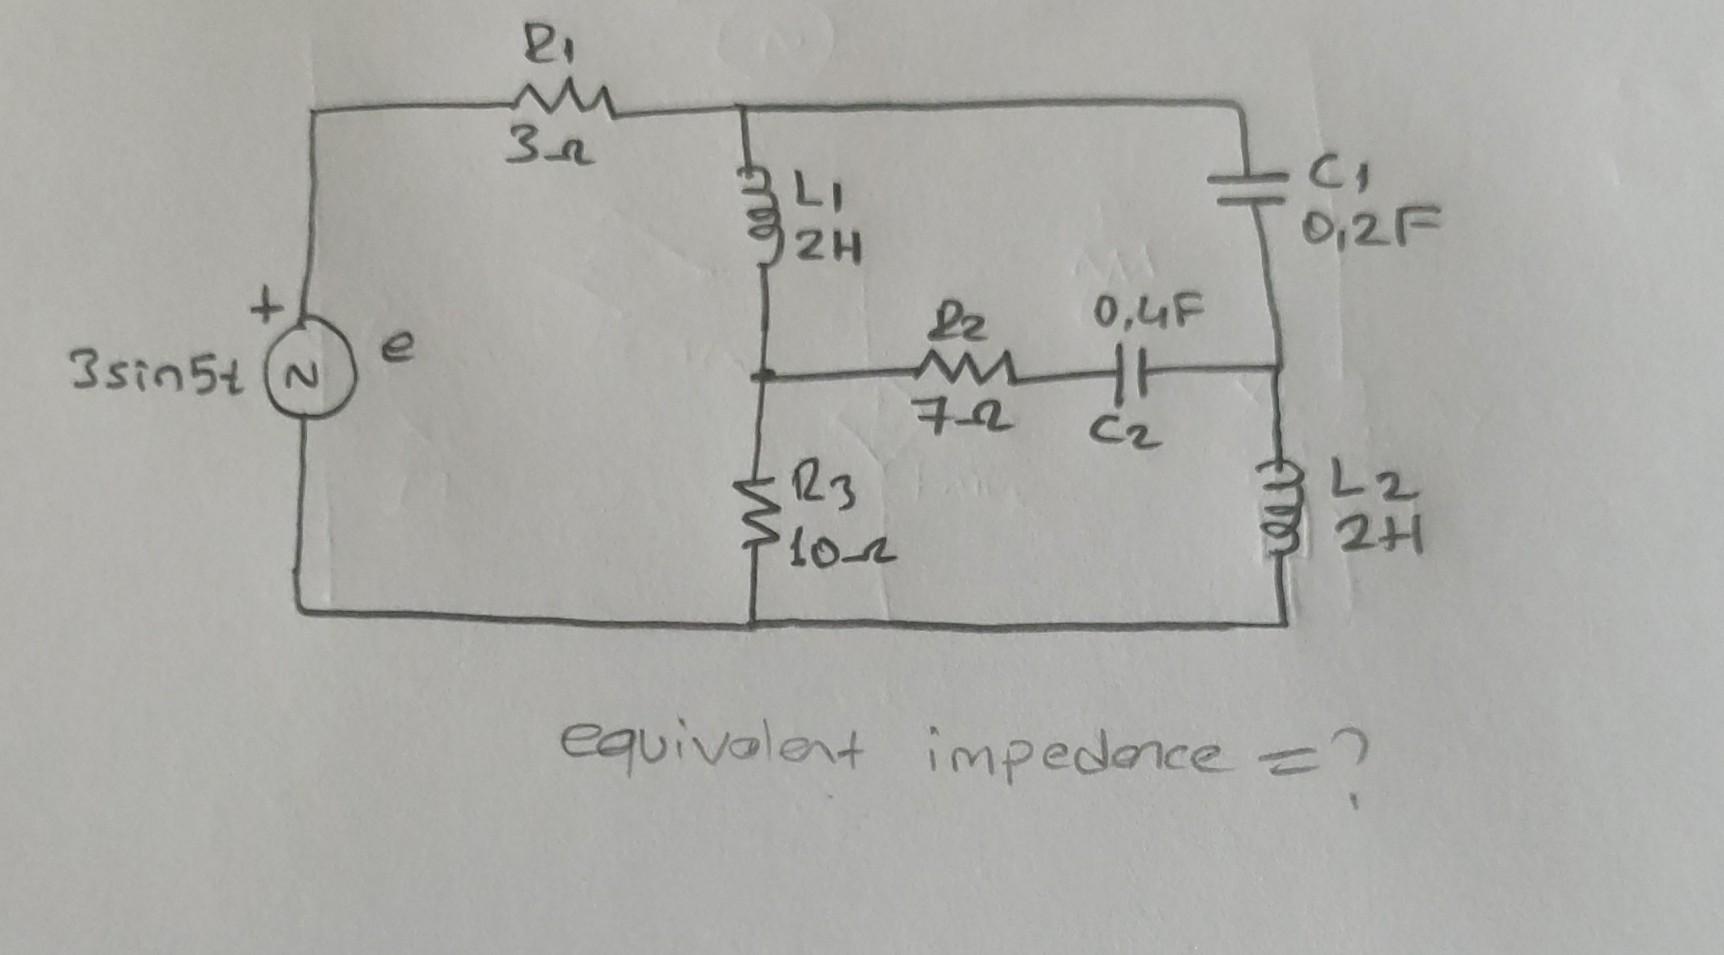 R1
3Ω
L1
2H
C1
0,2F
+
3sin5t
e
R2
7Ω
0,4F
C2
R3
10Ω
L2
2H
equivalent impedance = ?